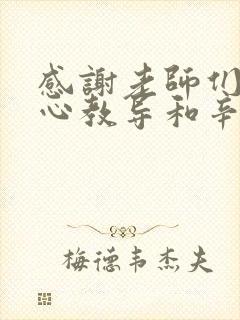 感謝老師们
心教导和辛
梅德韦杰夫